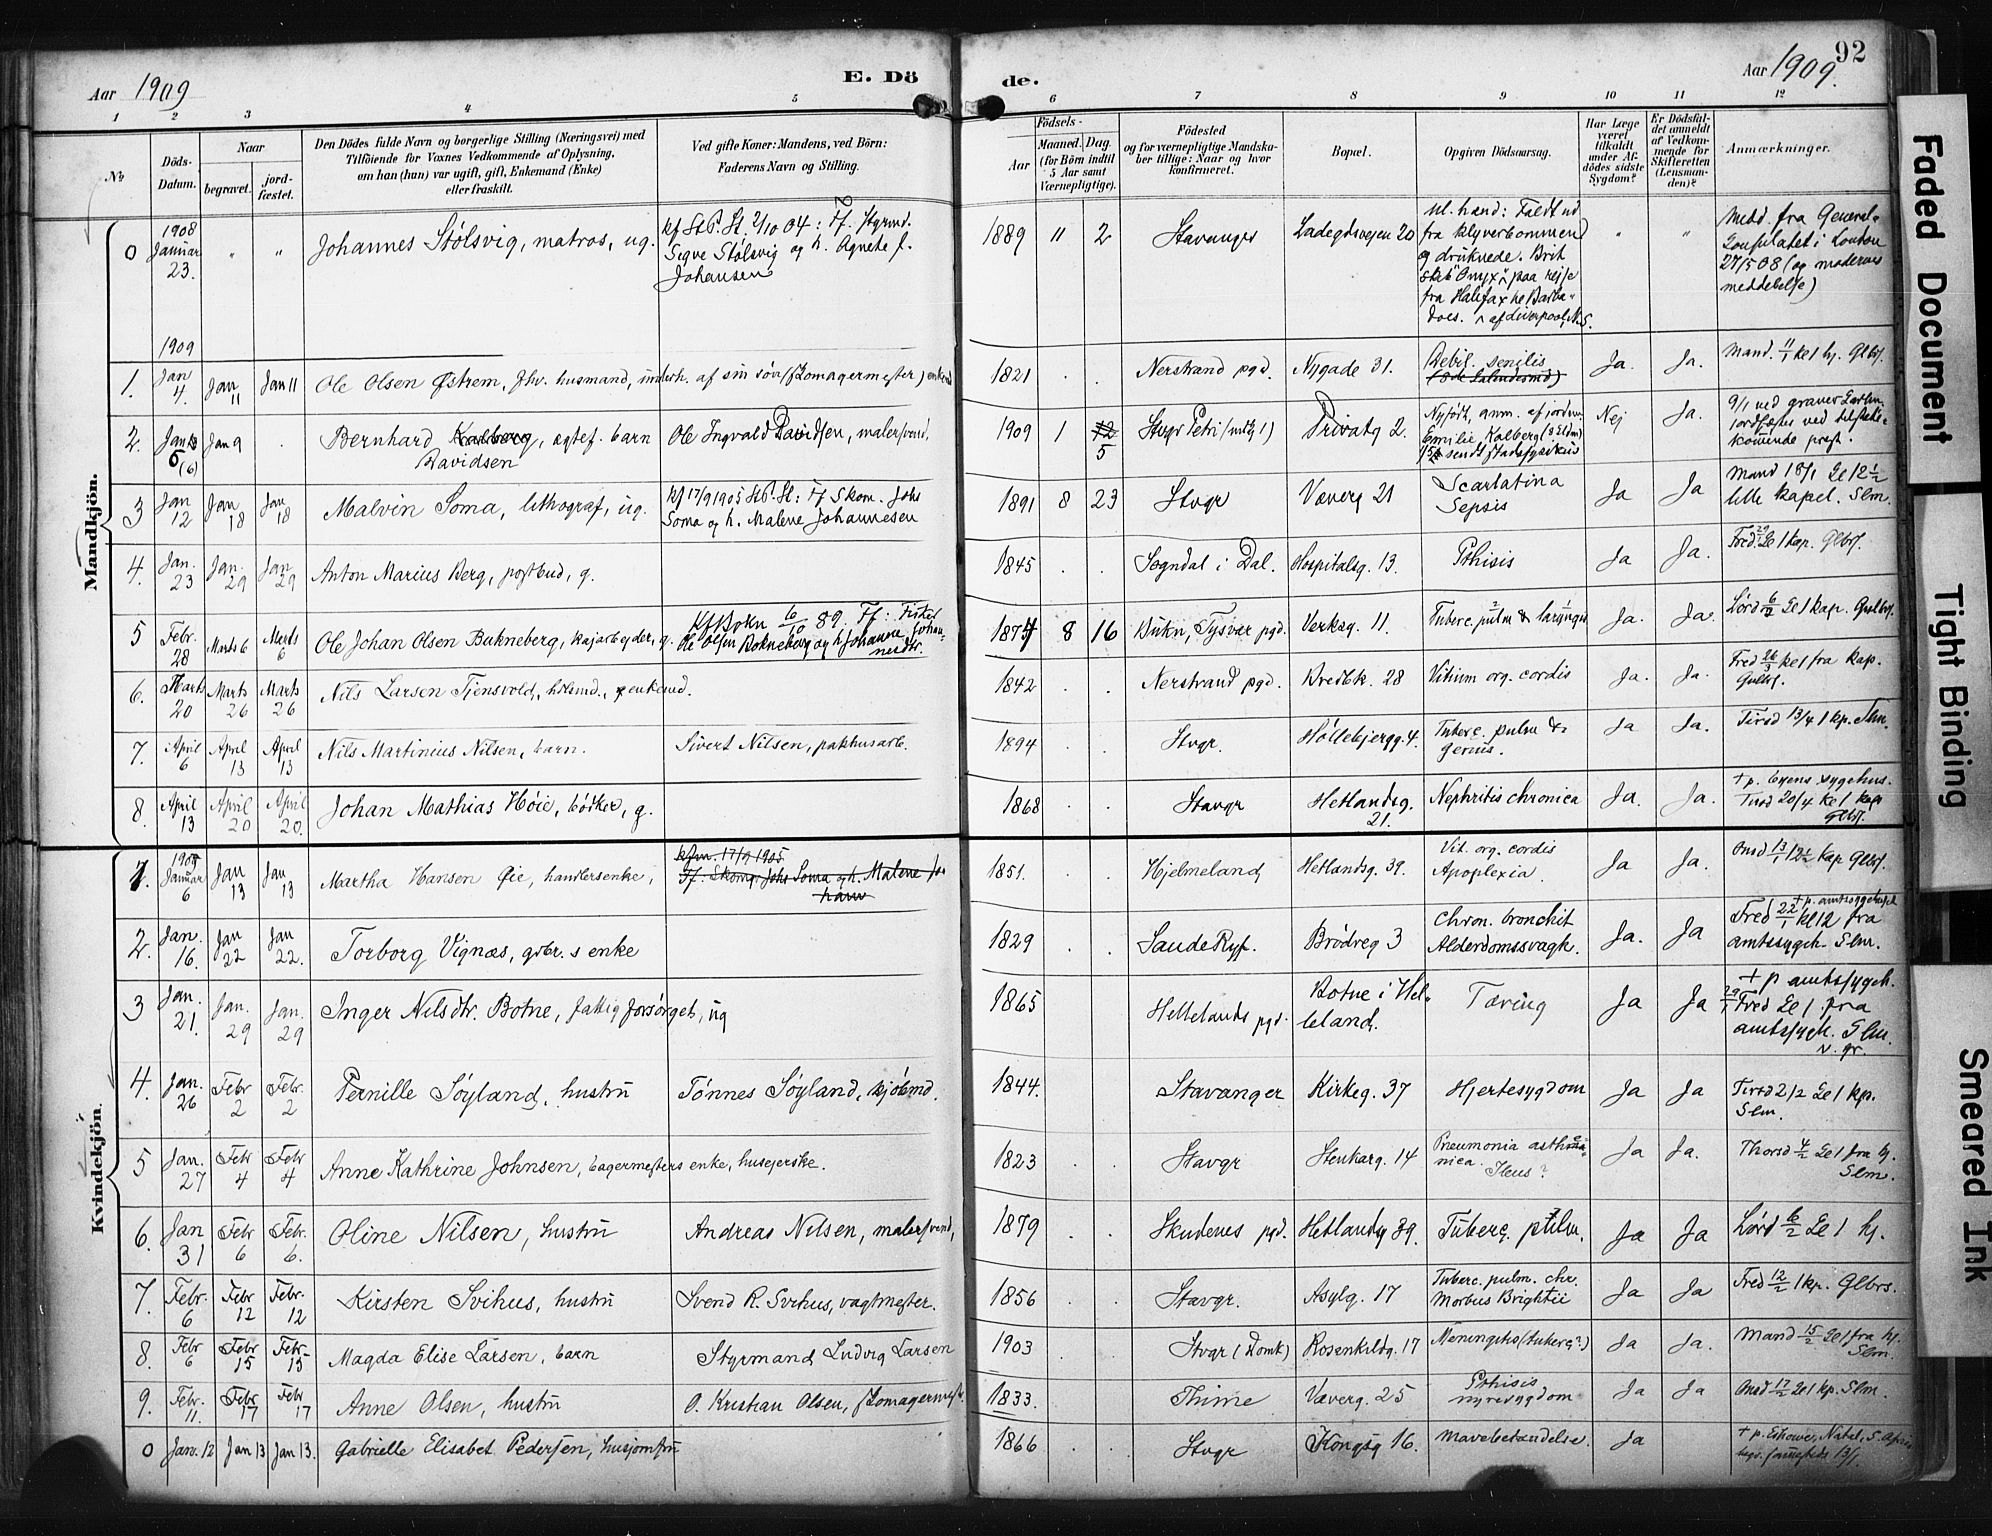 92
Aar 1909
E. Dö
de.
Aar 1909.
1 2 3 4 5 6 7 8 9 10 11 12
No
Döds-Datum.
Naar
begravet.
jord-fæstet.
Den Dödes fulde Navn og borgerlige Stilling (Næringsvei) med
Tilföiende for Voxnes Vedkommende af Oplysning,
om han (hun) var ugift, gift, Enkemand (Enke)
eller fraskilt.
Ved gifte Koner: Mandens, ved Börn:
Faderens Navn og Stilling.
Födsels-
Aar
Maaned. Dag.
(for Börn indtil
5 Aar samt
Værnepligtige).
Födested
og for værnepligtige Mandska-
ber tillige: Naar og hvor
konfirmeret.
Bopæl.
Opgiven Dödsaarsag.
Har Læge
været
tilkaldt
under Af-
dödes sidste
Sygdom?
Er Dödsfal-
det anmeldt
af Vedkom-
mende for
Skifteretten
(Lensman-
den)?
Anmærkninger.
Mandkjön.
0 1908 Januar 23. " " Johannes Stölsvig, matros, ug.
kf St.P. St. 2/10 04: Ff. Styrmd.
Sigve Stölsvig og h. Agnete f.
Johansen
1889 11 2 Stavanger Ladegdsvejen 20
ul. hænd: Faldt ud
fra klyverbommen
og druknede. Brit
skib "Onyx" paa rejse
fra Halifax til Barba-
does. af Liverpool, N.S.
" "
Medd. fra General-
Consulatet i London
27/5 08 (og moderens
meddelelse)
1909
1. Jan 4. Jan 11 Jan 11 Ole Olsen Østrem, fhv. husmand, underh. af sin søn (skomagermester) enkemd
1821 . . Nerstrand pgd. Nygade 31. Debil. senilis Ja. Ja. Mand. 11/1 kl 1 hj. Glbrs.
2. Jan 5 (6) Jan 9 . Bernhard Kalberg, ægtef. barn
Davidsen
Ole Ingvald Davidsen, malersvend.
1909 1 12 5 Stvgr Petri Privatg 2.
Nyfødt, anm. af jordm.
Emilie Kalberg
Nej Ja.
9/1 ved graver
jordfæstes ved tilstede-
kommende prest.
3 Jan 12 Jan 18 Jan 18 Malvin Soma, lithograf, ug.
kf 17/9 1905 St.P. St: Ff Skom. Johs
Soma og h. Malene Johannesen
1891 8 23 Stvgr Væverg 21 Scarlatina
Sepsis
Ja Ja Mand 18/1 kl 12 1/2
lille kapel. Slm.
4. Jan. 23 Jan. 29 Jan. 29 Anton Marius Berg, postbud, g.
1845 . . Sogndal i Dal. Hospitalsg. 13. Phthisis Ja Ja. Fred. 29/1 kl 1 kap. Glbrs.
5 Febr. 28 Marts 6 Marts 6 Ole Johan Olsen Bukneberg, kajarbejder, g.
Kf Bokn 6/10 89. Ff: Fisker
Ole Olsen Bokneberg og h Johanne Johan-
nesdtr.
1874 8 16 Bukn, Tysvær pgd. Verksg. 11. Tuberc. pulm & laryngis Ja. Ja. Lørd 6/3 kl 1 kap. Glbrs.
6. Marts 20 Marts 26 Marts 26 Nils Larsen Tjensvold, enkemd.
1842 . . Nerstrand pgd. Bredbk. 28 Vitium org. cordis Ja. Ja. Fred 26/3 kl 1 fra kap.
Glbrs.
7. April 6 April 13 April 13 Nils Martinius Nilsen, barn. Sivert Nilsen, pakhusarb.
1894 . . Stvgr. Höllebjergg. 4. Tuberc. pulm &
genus.
Ja Ja. Tirsd 13/4 1 kp. Slm.
8. April 13 April 20 April 20. Johan Mathias Höie, bödker, g.
1868 . . Stavgr Hetlandsg.
21.
Nephritis chronica Ja. Ja. + p. byens sygehus.
Tirsd 20/4 kl 1 kap
Glbrs.
Kvindekjön.
1. 1909 Januar 6 Jan 13 Jan 13 Martha Hansen Øie, handlersenke,
kfm. 17/9 1905
Ff: Skomgr Johs Soma og h. Malene Jo-
hann
1851. . . Hjelmeland Hetlandsg. 39. Vit. org. cordis
Apoplexia.
Ja Ja. Onsd 13/1 12 1/2 kap Glbrs.
2. Jan. 16. Jan 22 Jan 22. Torborg Vignæs, gdbr.s enke
1829 . . Saude Ryf. Brödreg 3 Chron. bronchit
Alderdomssvagh.
Ja. Ja + p. amtssygehuset
Fred 22/1 kl 12 fra
amtssygeh. Slm.
3 Jan. 21. Jan. 29 Jan. 29 Inger Nilsdtr. Botne, fattigforsørget, ug
1865 . . Hellelands pgd. Botne i Hel-
leland.
Tæring Ja Ja + p amtssygeh.
29/1 Fred kl 1 fra
amtssygeh. Slm.
N. gr.
4. Jan. 26 Febr 2 Febr. 2 Pernille Söyland, hustru Tönnes Söyland, kjöbmd.
1844. . . Stavanger Kirkeg. 37 Hjertesygdom Ja Ja Tirsd 2/2 kl 1 kp.
Slm.
5 Jan. 27 Febr 4 Febr 4 Anne Kathrine Johnsen, bagermesters enke, husejerske.
1823 . . Stavgr Stenkarg. 14 Pneumonia asthma-
nica.
Ileus?
Ja Ja. Thorsd 4/2 kl 1 fra hj.
Slm.
6. Jan 31 Febr 6 Febr. 6. Oline Nilsen, hustru Andreas Nilsen, malersvend,
1879 . . Skudenes pgd. Hetlandsg 39. Tuberc. pulm. Ja Ja Lørd 6/2 kl 1 hj.
7. Febr. 6 Febr 12 Febr. 12 Kirsten Svihus, hustru Svend R. Svihus, vagtmester.
1856 . . Stavgr. Asylg. 17 Tuberc. pulm. chr.
Morbus Brightii
Ja Ja Fred 12/2 1 kp. Glbrs.
8. Febr 6 Febr. 15 Febr. 15 Magda Elise Larsen, barn Styrmand Ludvig Larsen
1903 . . Stvgr (Domk) Rosenkildg. 17 Meningitis (tuberc?) Ja Ja. Mand 15/2 kl 1 fra hj.
Slm.
9. Febr. 11. Febr 17 Febr 17 Anne Olsen, hustru O. Kristian Olsen, skomagermestr.
1833. . . Thime Væverg. 25 Phthisis
nyresygdom
Ja Ja Onsd 17/2 kl 1 kp. Slm.
0 Janr. 12 Jan 13 Jan 13. Gabrielle Elisabet Pedersen, husjomfru
1866 . . Stvgr Kongsg 16. Mavebetændelse. Ja + p. Eshowe, Natal, S. Africa
begr. sammesteds 13/1.
Faded Document
Tight Binding
Smeared Ink